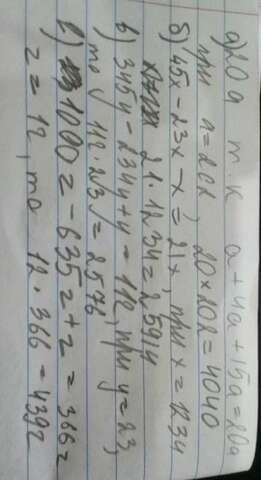 а) 20a т.к a + 4a + 15a = 20a
при a = 202 20 × 202 = 4040
б) 45x - 23x - x = 21x, при x = 1234
21 · 1234 = 25914
в) 345y - 234y + y = 112, при y = 23,
то 112 · 23 = 2576
1000z - 635z + z = 366z
z = 12, то 12 · 366 = 4392